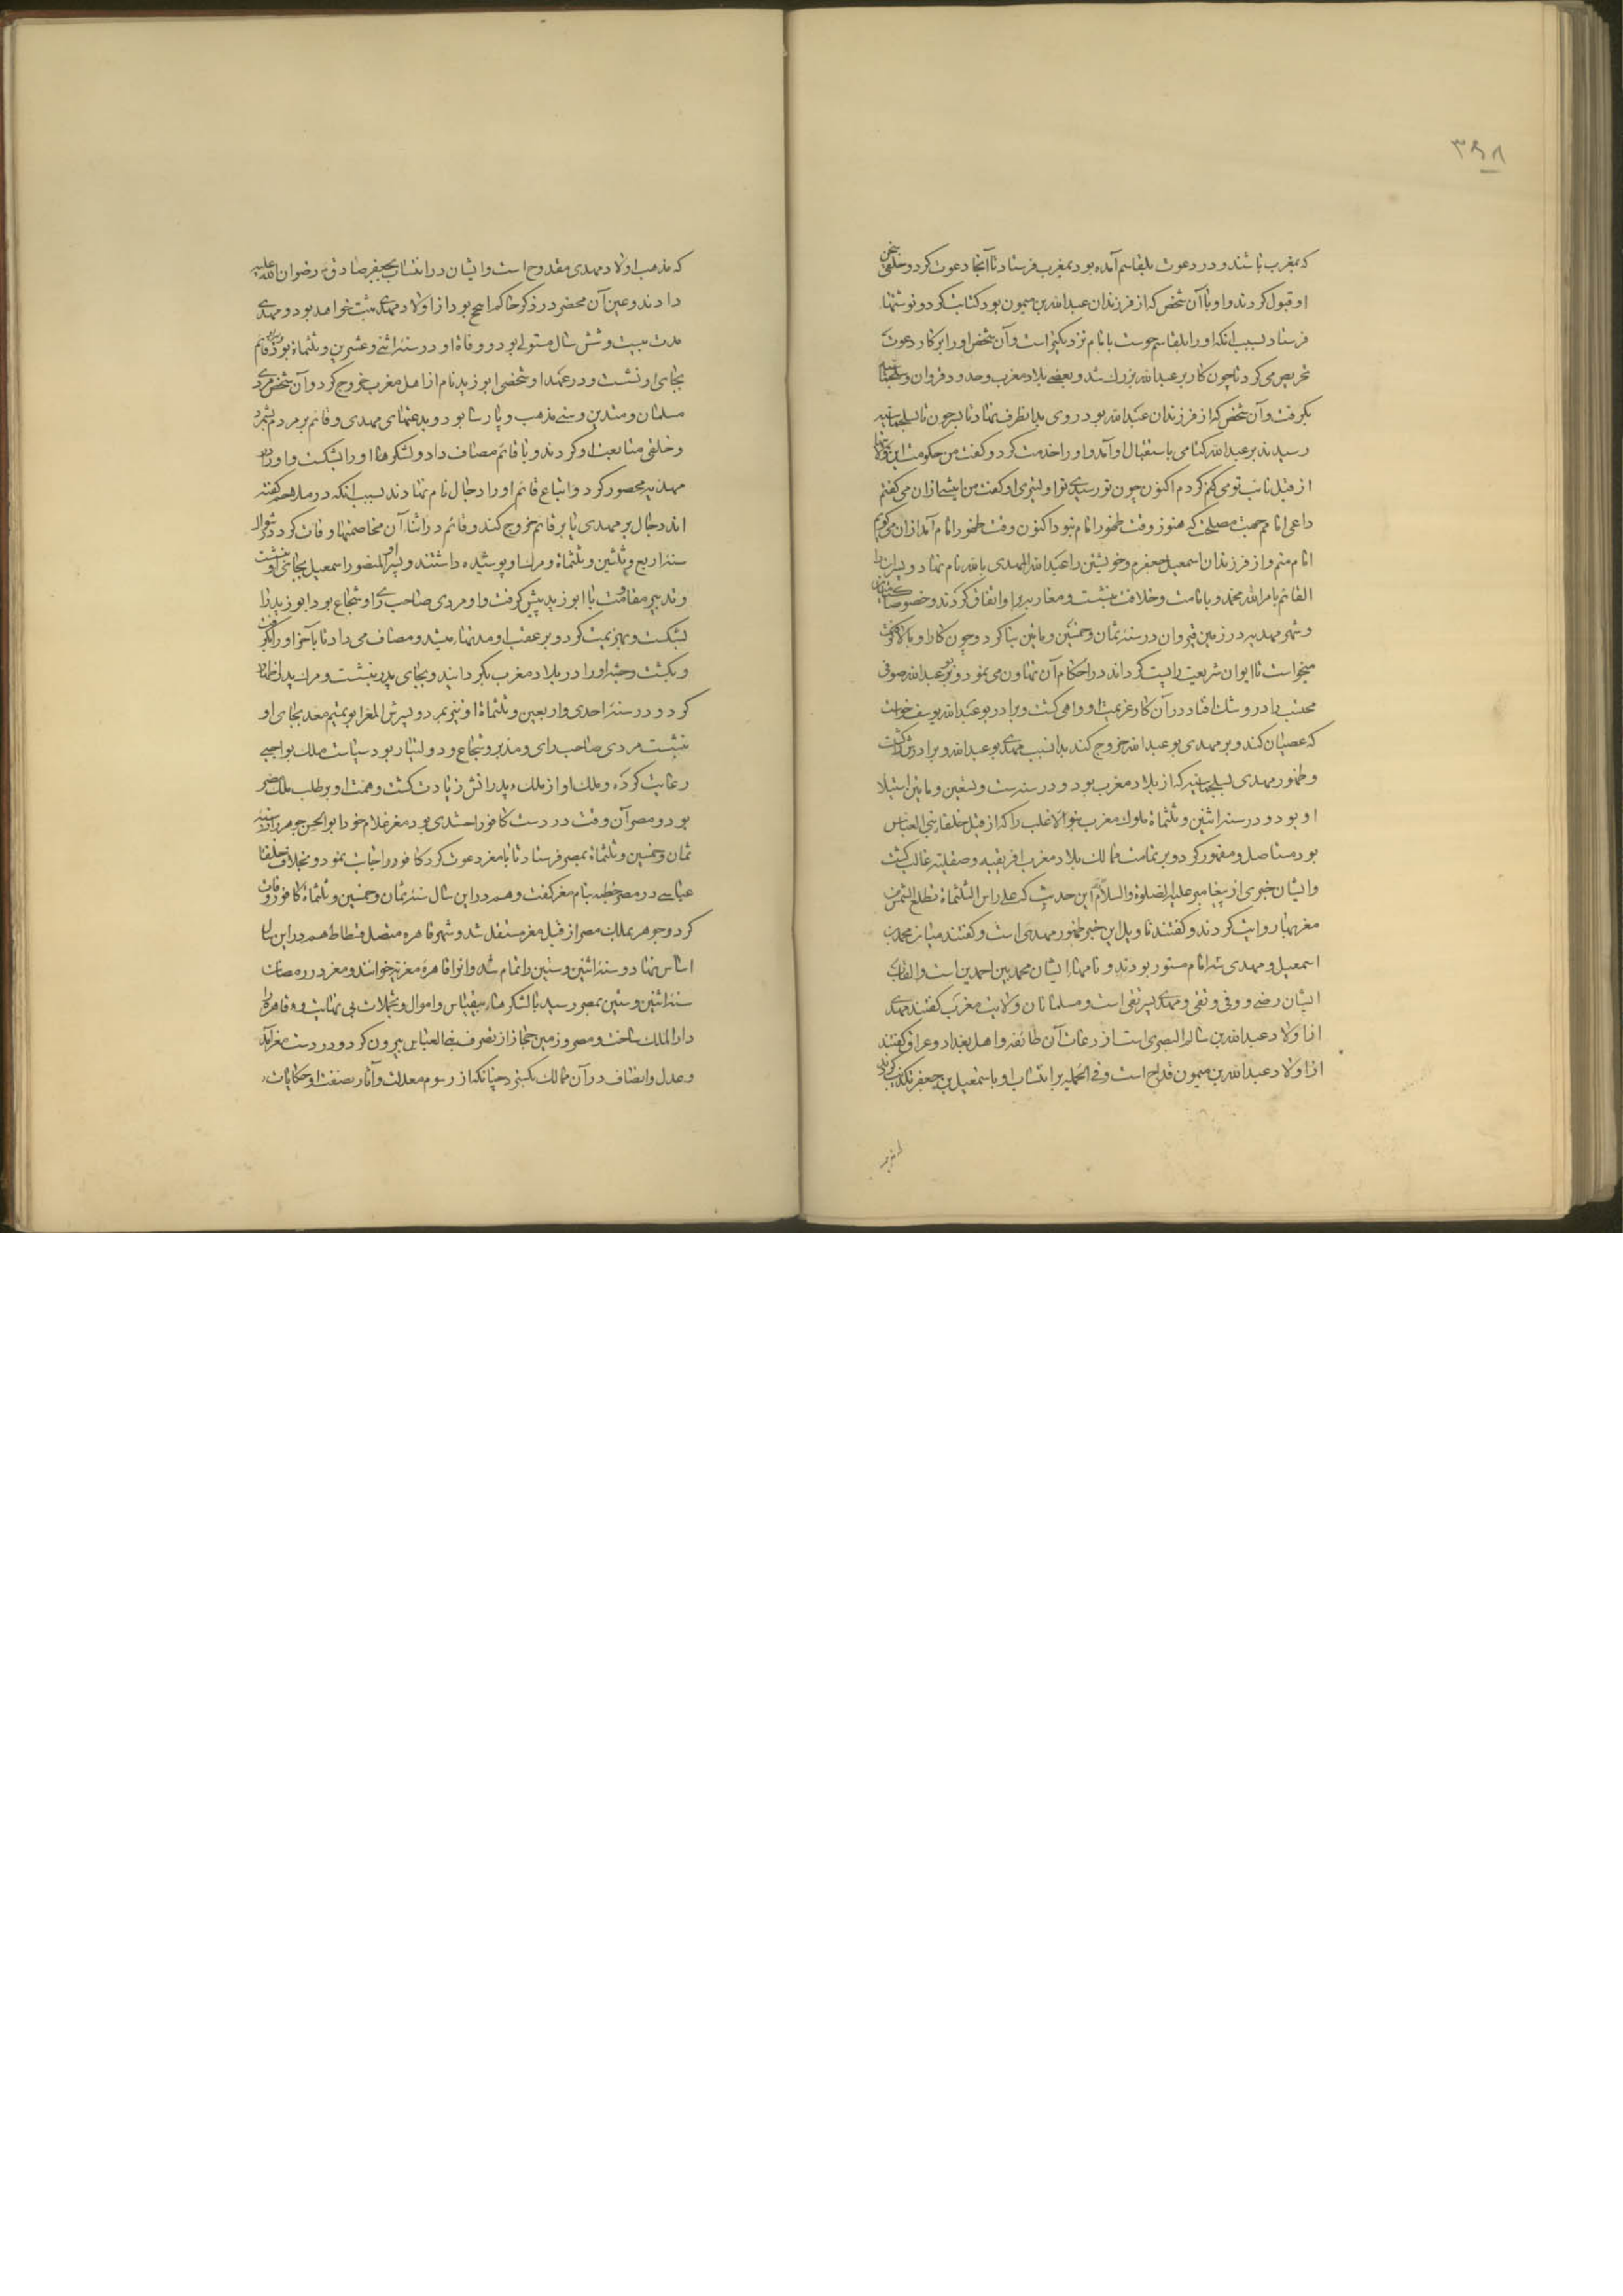 ٣٩٨
که بمغرب باشند و در دعوت بلقاسم آمده بود بمغرب فرستاد تا آنجا دعوت کرد و خلقی سخن
او قبول کردند و او با آن شخص که از فرزندان عبدالله بن میمون بود کتابت کرد و نوشتها
فرستاد بسبب آنکه او را بلقاسم حوست بامام نزدیکتر است و آن شخص او را بر کار دعوت
تحریص می کرد تا چون کار بر عبدالله بزرگ شد و بعضی بلاد مغرب و حدود قیروان و سجلماسه
بگرفت و آن شخص که از فرزندان عبدالله بود روی بدانطرف نهاد تا چون تا بسلجماسه
رسیدند بر عبدالله کتامی باستقبال او آمد و او را خدمت کرد و گفت من حکومت این ولایتها
از قبل نایب تو می کردم اکنون چون تو رسیدی تو اولیتری او گفت من پیش ازان می گفتم
داعی امامم جهت مصلحت که هنوز وقت ظهور امام نبود اکنون وقت ظهور امام آمد ازان می گویم
امام منم و از فرزندان اسمعیل جعفرم و خویشتن را عبدالله المهدی بالله نام نهاد و پسرش را
القائم بامرالله محمد و بامامت و خلافت بنشست و مغاربه بر او اتفاق کردند و خصوصا کتامیان
و شهر مهدیه در زمین قیروان در سنه ثمان و خمسین و مایتین بنا کرد و چون کار او بالا گرفت
میخواست تا ایوان شریعت را پست گرداند در احکام آن تهاون می نمود و بو عبدالله صوفی
محتسب را در و شک افتاد در آن کار عزیمت او واهی گشت و برادر بو عبدالله یوسف خواست
که عصیان کند و بر مهدی بو عبدالله خروج کند بدانسبب مهدی بو عبدالله و برادرش را بکشت
و ظهور مهدی بسلجماسه که از بلاد مغرب بود و در سنه ست و تسعین و مایتین استیلا
او بود و در سنه اثنین و ثلثمائة ملوک مغرب بنو الاغلب را که از قبل خلفاء بنی العباس
بود مستاصل و مقهور کرد و بر تمامت ممالک بلاد مغرب افریقیه و صقلیه غالب گشت
و ایشان خبری از پیغامبر علیه الصلوة والسلام این حدیث که علی راس الثلثمائة تطلع الشمس من
مغربها روایت کردند و گفتند تاویل این خبر ظهور مهدی است و گفتند میان محمد بن
اسمعیل و مهدی سه امام مستور بودند و نامهاء ایشان محمد بن احمد بن است و القاب
ایشان رضی و وفی و تقی و مهدی پسر تقی است و مسلمانان ولایت مغرب گفتند مهدی
از اولاد عبدالله بن سالم البصری است از دعات آن طائفه و اهل بغداد و عراق گفتند
از اولاد عبدالله بن میمون قداح است و فی الجمله بر انتساب او باسمعیل بن جعفر تکذیب کردند
که مذهب اولاد مهدی مقدوح است و ایشان در انتساب بجعفر صادق رضوان الله علیه
دادند و عین آن محضر در ذکر حاکم اسح بود از اولاد مهدی مثبت خواهد بود و مهدی
مدت بیست و شش سال متولی بود و وفاة او در سنه اثنی و عشرین و ثلثمائة بود پسرش قائم
بجای او نشست و در عهد او شخصی ابو زید نام از اهل مغرب خروج کرد و آن شخص مردی
مسلمان و متدین و سنی مذهب و پارسا بود و بدعتهای مهدی و قائم بر مردم بشمرد
و خلقی متابعت او کردند و با قائم مصاف داد و لشکرهاء او را بشکست و او را در
مهدیه محصور کرد و اتباع قائم او را دجال نام نهادند بسبب آنکه در ملاحم گفته
اند دجال بر مهدی یا بر قائم خروج کند و قائم در اثناء آن مخاصمتها وفات کرد در شوال
سنه اربع و ثلثین و ثلثمائة و مرگ او پوشیده داشتند و پسر او المنصور اسمعیل بجای او بنشست
و تدبیر مقاومت با ابو زید پیش گرفت و او مردی صاحب رای و شجاع بود ابو زید را
بشکست و بهزیمت کرد و بر عقب او مدتها میشد و مصاف می داد تا بآخر او را بگرفت
و بکشت و جثه او را در بلاد مغرب بگردانید و بجای پدر بنشست و مرگ پدر اظهار
کرد و در سنه احدی و اربعین و ثلثمائة او نیز بمرد و پسرش المعز ابو تمیم معد بجای او
بنشست مردی صاحب رای و مدبر و شجاع و دولتیار بود سیاست ملک بواجبی
رعایت کرده و ملک او از ملک پدرانش زیادت گشت و همت او بر طلب ملک مصر
بود و مصر آن وقت در دست کافور اخشدی بود معز غلام خود ابو الحسن جوهر را در سنه
ثمان و خمسین و ثلثمائة بمصر فرستاد تا با معز دعوت کرد کافور اجابت نمود و بخلاف خلفاء
عباسی در مصر خطبه بنام معز گفت و هم در این سال سنه ثمان و خمسین و ثلثمائة کافور وفات
کرد و جوهر بملک مصر از قبل معز مستقل شد و شهر قاهره متصل فسطاط هم در این سال
اساس نهاد و سنه اثنین و ستین را تمام شد و انرا قاهرهٔ معزیه خوانند و معز در رمضان
سنه اثنین و ستین بمصر رسید با لشکرهاء بیقیاس و اموال و تجملات بی نهایت و قاهره را
دار الملک ساخت و مصر و زمین حجاز از تصرف بنی العباس بیرون کرد و در دست معز آمد
و عدل و انصاف در آن ممالک بگسترد چنانکه از رسوم معدلت و آثار نصفت او حکایات